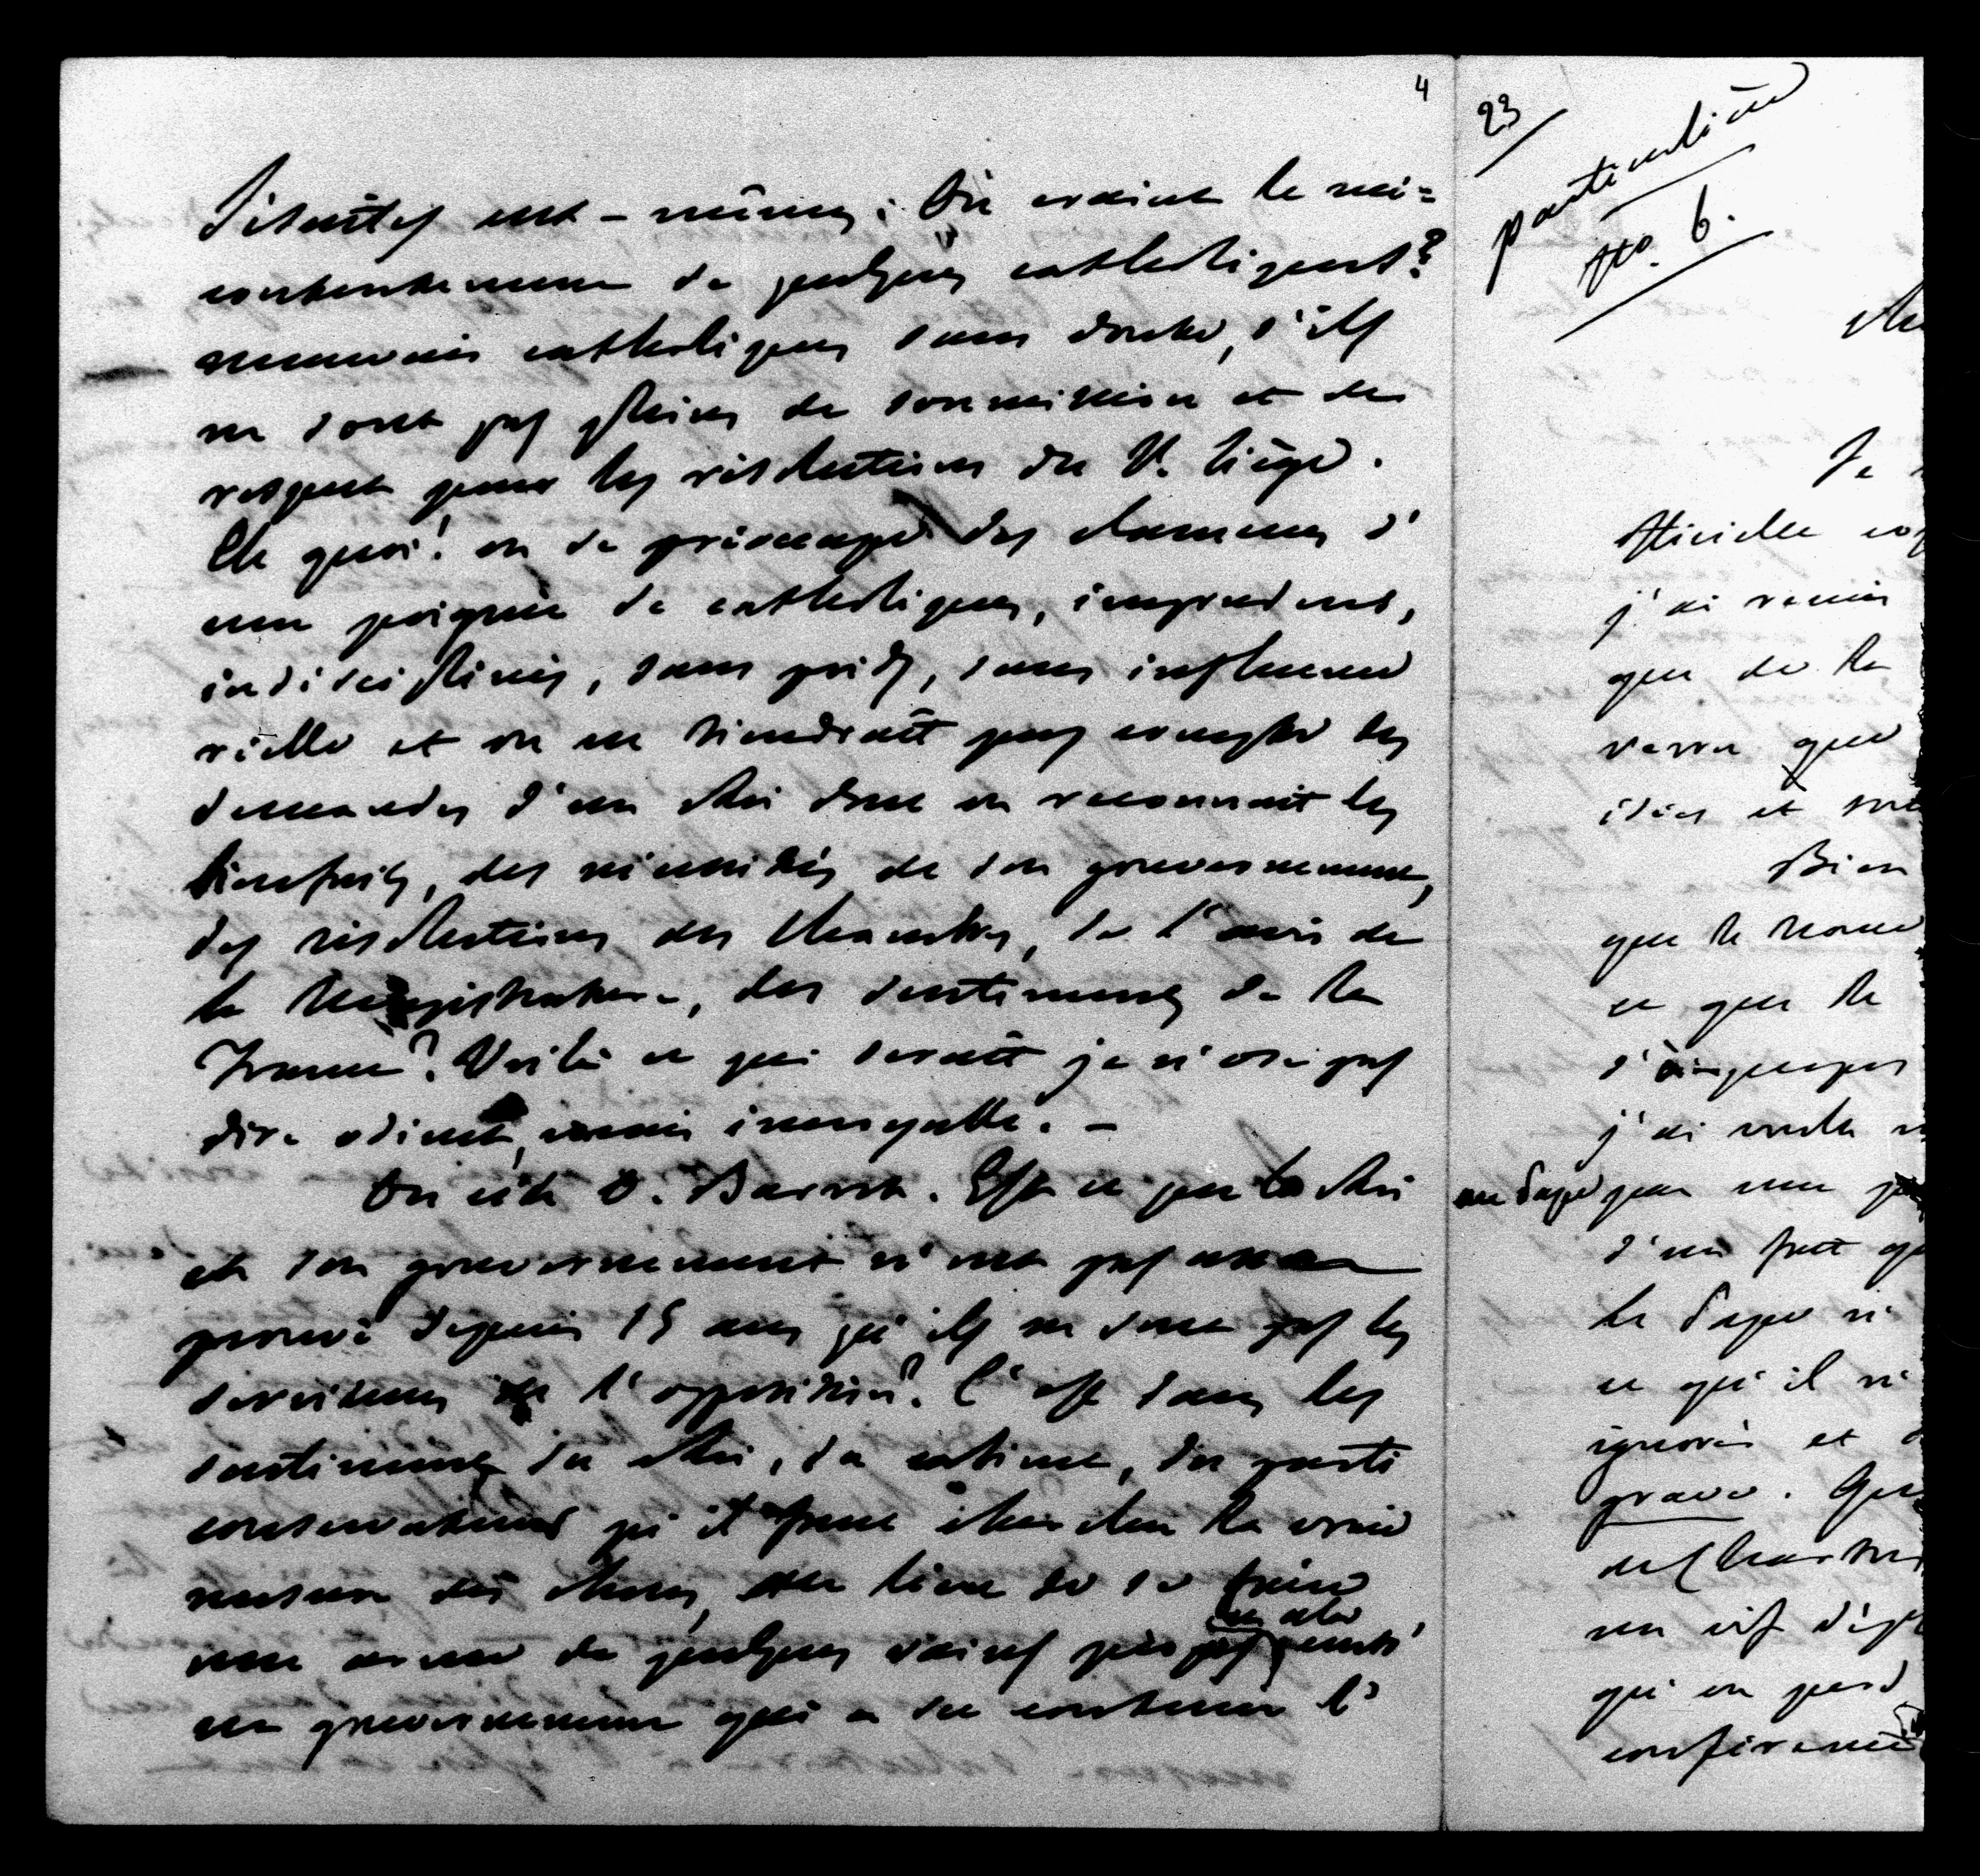 4
Jésuites eux-mêmes. On craint le mé-
contentement de quelques catholiques?
mauvais catholiques sans doute, s'ils
ne sont pas pleins de soumission et de
respect pour les résolutions du St. Siège.
Eh quoi! on se préoccupe des clameurs d'
une poignée de catholiques, imprudens,
indisciplinés, sans poids, sans influence
réelle et on ne tiendrait pas compte des
demandes d'un Roi dont on reconnait les
bienfaits, des nécessités de son gouvernement,
des résolutions des Chambres, de l'avis de
la Magistrature, des sentimens de la
France? Voilà ce qui serait je n'ose pas
dire odieux, mais incroyable. -
On cite O. Barrot. Est ce que le Roi
et son gouvernement n'ont pas assez
prouvé depuis 15 ans qu'ils ne sont pas les
serviteurs de l'opposition? C'est dans les
sentimens du Roi, du cabinet, du parti
conservateur qu'il faut chercher la vraie
mesure des choses, au lieu de se faire
une arme de quelques vains propos
un gouvernement qui a su contenir l'
23
particulière
No. 6.
Je
officielle
j'ai remis
que de la
verra que
idées et
Bien
que le
ce que le
j'ai voulu
au Pape que
d'un fait
le Pape n'
ce qu'il n'
ignorés et
grave.
un vif
qu'on perd